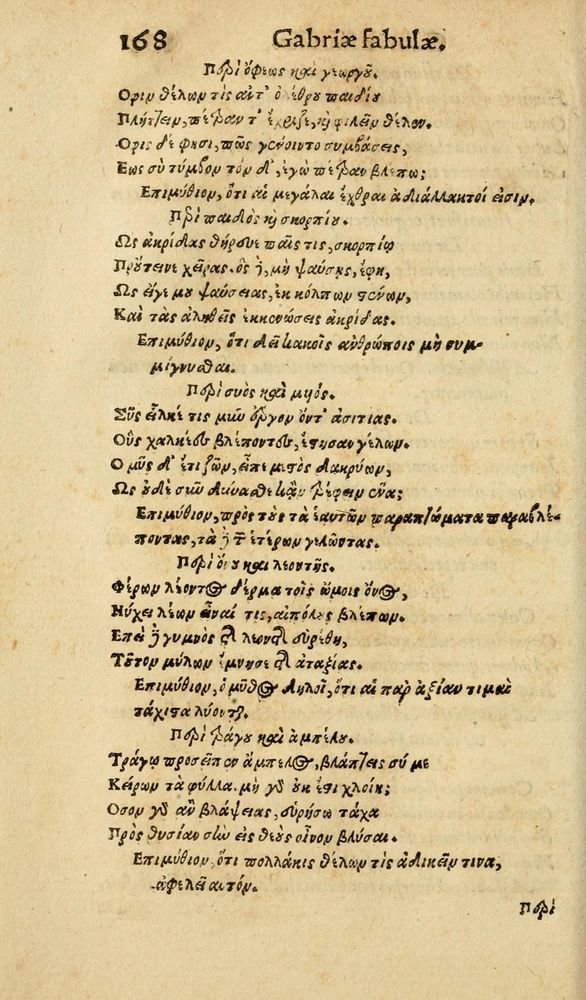 168 Gabriæ fabulæ.
Περὶ ὄφεως καὶ γεωργοῦ.
Οφιν θέλων τὶς ἀντ' ὀλέθρου παιδίου
Πλήττειν, πέτραν τ' ἔχριζε, καὶ φιλεῖν θέλεν.
Οφις δέ φησι, πῶς γένοιντο συμβάσεις,
Εως σὺ τύμβον τόν δ', ἐγὼ πέτραν βλέπω;
Επιμύθιον, ὅτι αἱ μεγάλαι ἔχθραι ἀδιάλλακτοί εἰσιν.
Περὶ παιδὸς καὶ σκορπίου.
Ως ἀκρίδας θήρευε παῖς τις, σκορπίῳ
Πρύτεινε χεῖρας. ὃς δὲ, μὴ ψαύσῃς, ἔφη,
Ως εἴγε μου ψαύσειας, ἐκ κόλπων τένων,
Καὶ τὰς ἀληθεῖς ἐκκενώσεις ἀκρίδας.
Επιμύθιον, ὅτι δεῖ κακοῖς ἀνθρώποις μὴ συμ-
μίγνυσθαι.
Περὶ συὸς καὶ μυός.
Σῦς εἷλκέ τις μιῶν ὄργον ὄντ' ἀσιτίας.
Οὓς χαλκέων βλέποντων, ἔτησαν γέλων.
Ο μῦς δ' ἔτι ζῶν, εἶπε μεστὸς δακρύων,
Ως οὐδὲ σιῶν δύνασθε κἂν τρέφειν ἕνα;
Επιμύθιον, πρὸς τοὺς τὰ ἑαυτῶν παραπτώματα παραβλέ-
ποντας, τὰ δὲ τῶν ἑτέρων γελῶντας.
Περὶ ὄνου καὶ λεοντῆς.
Φέρων λέοντος δέρμα τοῖς ὤμοις ὄνος,
Ηὔχει λέων εἶναί τις, αἰπόλους βλέπων.
Επεὶ δὲ γυμνὸς τῆς λεοντῆς εὑρέθη,
Τοῦτον μύλων ἔμνησε τῆς ἀταξίας.
Επιμύθιον, ὁ μῦθος δηλοῖ, ὅτι αἱ παρ' ἀξίαν τιμαὶ
τάχιστα λύονται.
Περὶ τράγου καὶ ἀμπέλου.
Τράγῳ προσεῖπεν ἄμπελος, βλάπτεις σύ με
Κείρων τὰ φύλλα. μὴ γὰρ οὐκ ἔστι χλοίη;
Οσον γὰρ ἂν βλάψειας, εὑρήσω τάχα
Πρὸς θυσίαν σὴν εἰς θεοὺς οἶνον βλύσαι.
Επιμύθιον, ὅτι πολλάκις θέλων τὶς ἀδικεῖν τινα,
ὠφελεῖ αὐτόν.
Περὶ